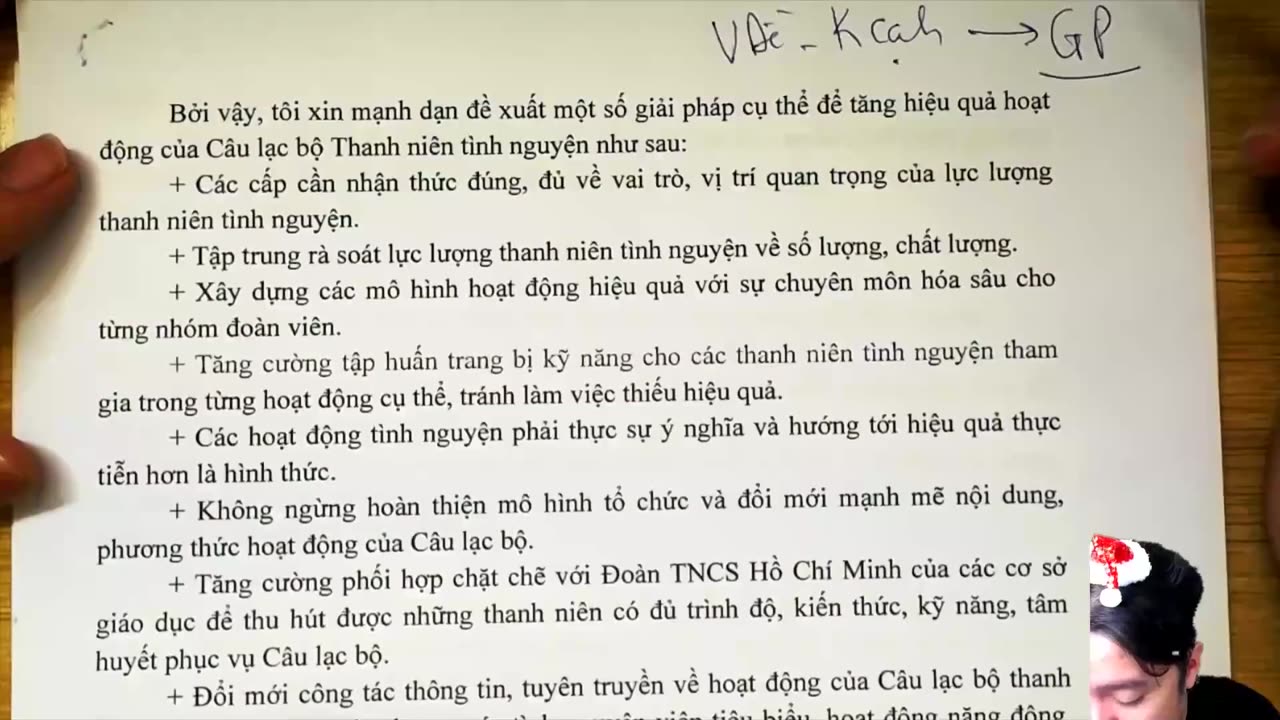 VĐề - K cạh → GP
Bởi vậy, tôi xin mạnh dạn đề xuất một số giải pháp cụ thể để tăng hiệu quả hoạt
động của Câu lạc bộ Thanh niên tình nguyện như sau:
+ Các cấp cần nhận thức đúng, đủ về vai trò, vị trí quan trọng của lực lượng
thanh niên tình nguyện.
+ Tập trung rà soát lực lượng thanh niên tình nguyện về số lượng, chất lượng.
+ Xây dựng các mô hình hoạt động hiệu quả với sự chuyên môn hóa sâu cho
từng nhóm đoàn viên.
+ Tăng cường tập huấn trang bị kỹ năng cho các thanh niên tình nguyện tham
gia trong từng hoạt động cụ thể, tránh làm việc thiếu hiệu quả.
+ Các hoạt động tình nguyện phải thực sự ý nghĩa và hướng tới hiệu quả thực
tiễn hơn là hình thức.
+ Không ngừng hoàn thiện mô hình tổ chức và đổi mới mạnh mẽ nội dung,
phương thức hoạt động của Câu lạc bộ.
+ Tăng cường phối hợp chặt chẽ với Đoàn TNCS Hồ Chí Minh của các cơ sở
giáo dục để thu hút được những thanh niên có đủ trình độ, kiến thức, kỹ năng, tâm
huyết phục vụ Câu lạc bộ.
+ Đổi mới công tác thông tin, tuyên truyền về hoạt động của Câu lạc bộ thanh
tiêu biểu, hoạt động năng động